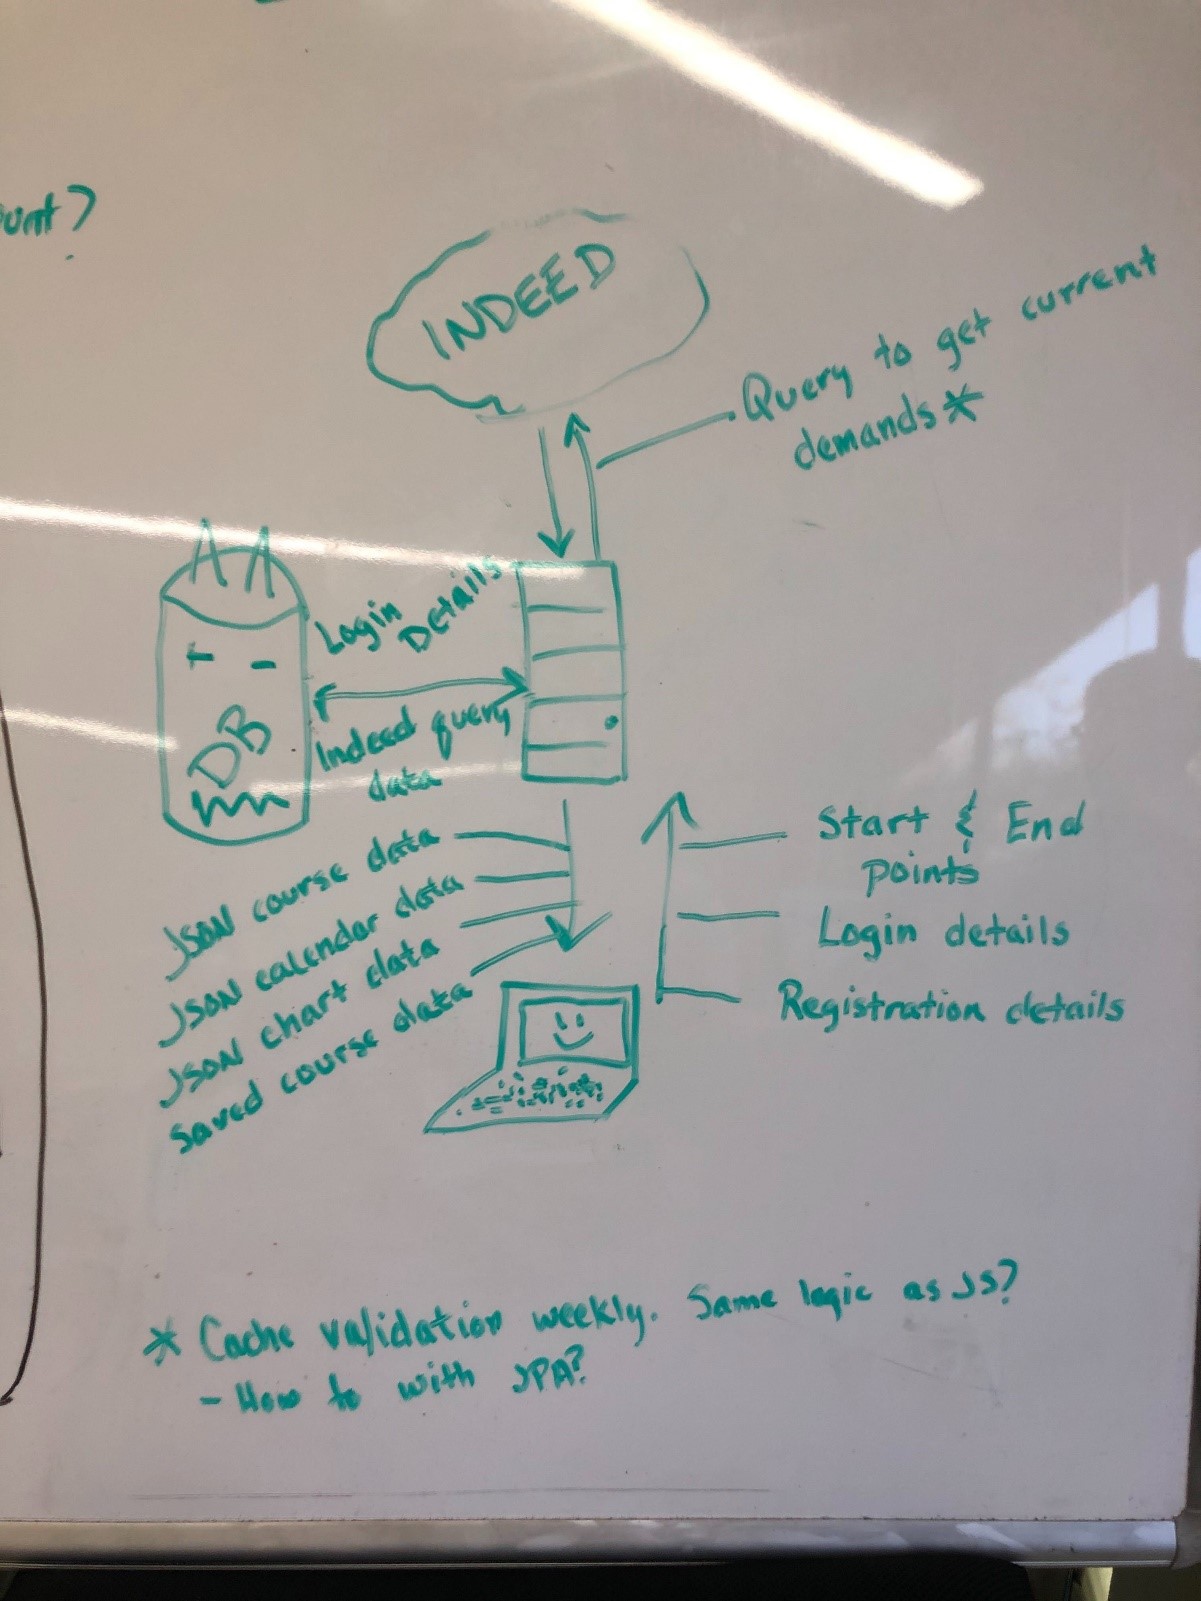 INDEED
Query to get current
demands*
Login
Details
Indeed query
data
DB
JSON course data
JSON calendar data
JSON chart data
Saved course data
Start & End
points
Login details
Registration details
* Cache validation weekly. Same logic as JS?
- How to with JPA?